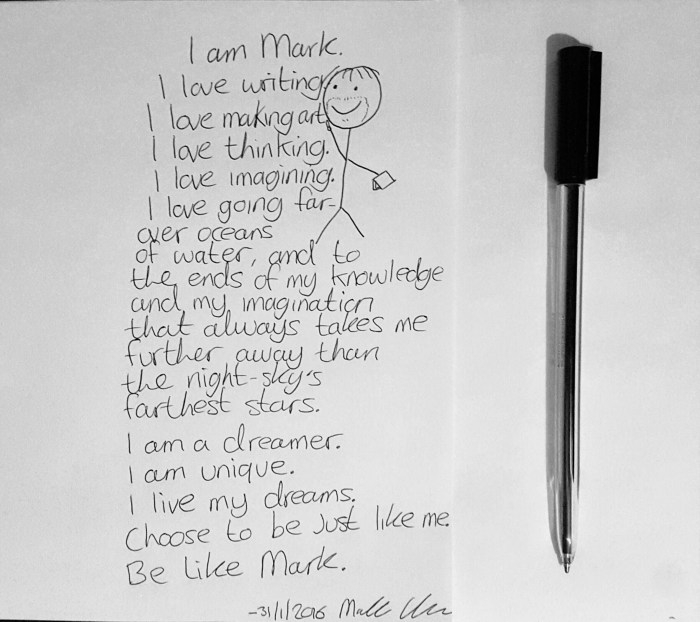 I am Mark.
I love writing.
I love making art.
I love thinking.
I love imagining.
I love going far-
over oceans
of water, and to
the ends of my knowledge
and my imagination
that always takes me
further away than
the night-sky's
farthest stars.
I am a dreamer.
I am unique.
I live my dreams.
Choose to be just like me.
Be like Mark.
-31/1/2016